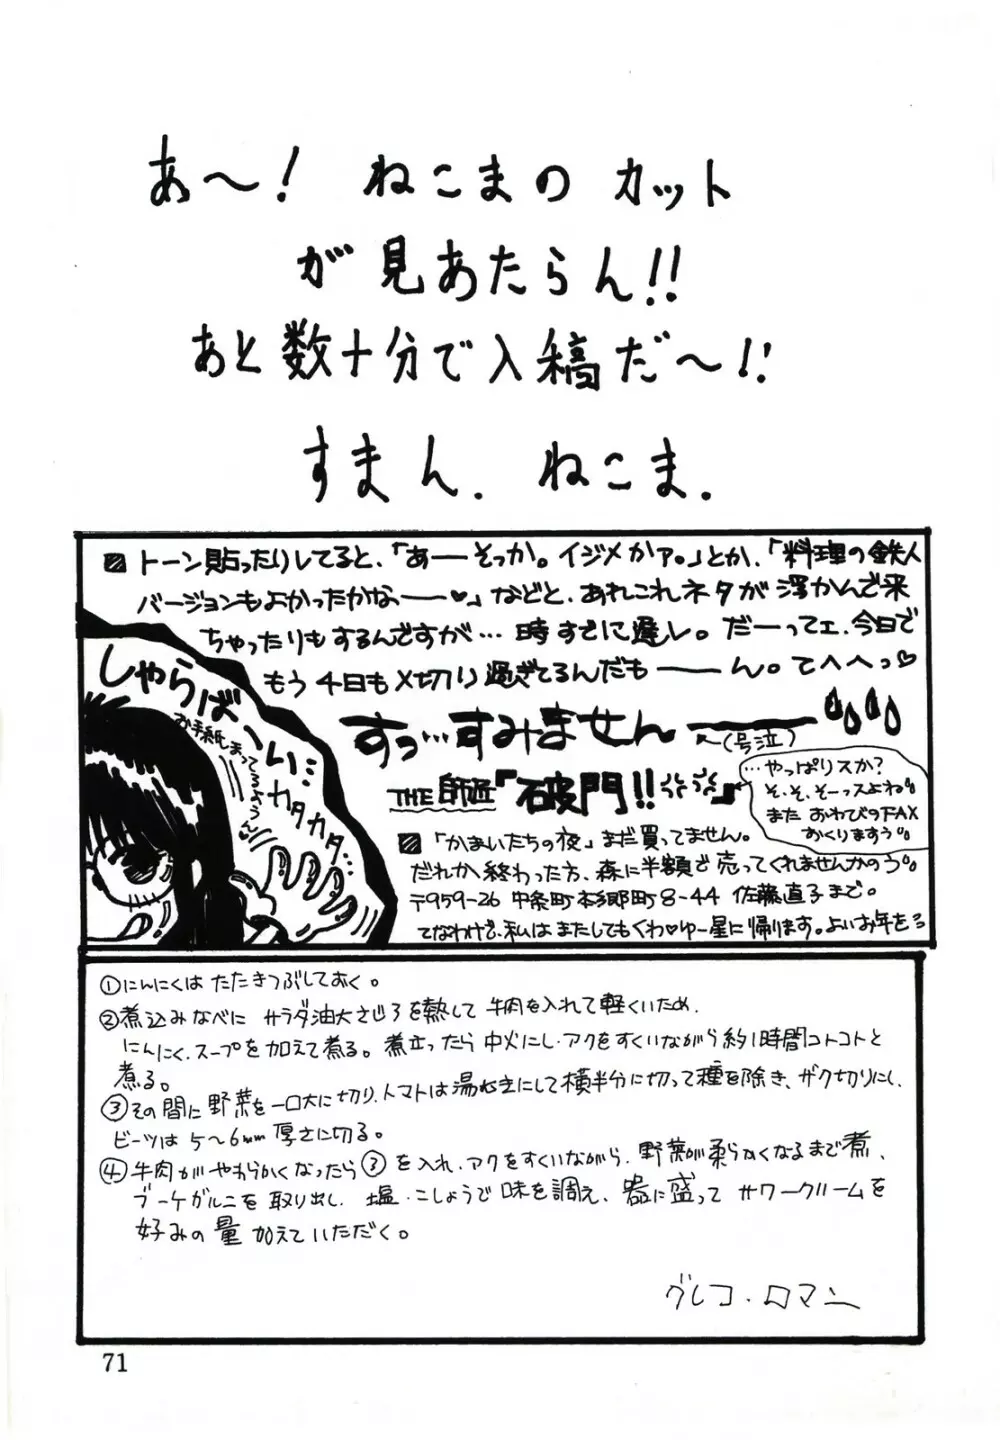 あ〜! ねこまの カット
が見あたらん!!
あと数十分で入稿だ〜!!
すまん. ねこま.
トーン貼ったりしてると、「あーそっか。イジメかァ。」とか、「料理の鉄人
バージョンもよかったかなー♥」などと、あれこれネタが浮かんで来
ちゃったりもするんですが…時すでに遅し。だーってェ、今日で
もう4日も〆切り過ぎてるんだもーーん。てへへっ♡
すっ…すみませんーー
(号泣)
THE 師匠『破門!!』
…やっぱりスか?
そ、そ、そーっスよね
また おわびのFAX
おくりますぅ
しゃらばーい…
お手紙まってるよぅん
カタカタ
「かまいたちの夜」まだ買ってません。
だれか終わった方、森に半額で売ってくれませんかのう
てなわけで、私はまたしてもくわ♡ゆー星に帰ります。よいお年を
①にんにくは たたきつぶしておく。
②煮込みなべに サラダ油大さじ3を熱して 牛肉を入れて軽くいため、
にんにく、スープを加えて煮る。煮立ったら中火にし、アクをすくいながら約1時間コトコトと
煮る。
③その間に野菜を一口大に切り、トマトは湯むきにして横半分に切って種を除き、ザク切りにし、
ビーツは5〜6mm厚さに切る。
④牛肉がやわらかくなったら③を入れ、アクをすくいながら、野菜が柔らかくなるまで煮、
ブーケガルニを取り出し、塩・こしょうで味を調え、器に盛ってサワークリームを
好みの量加えていただく。
グレコ・ロマン
71